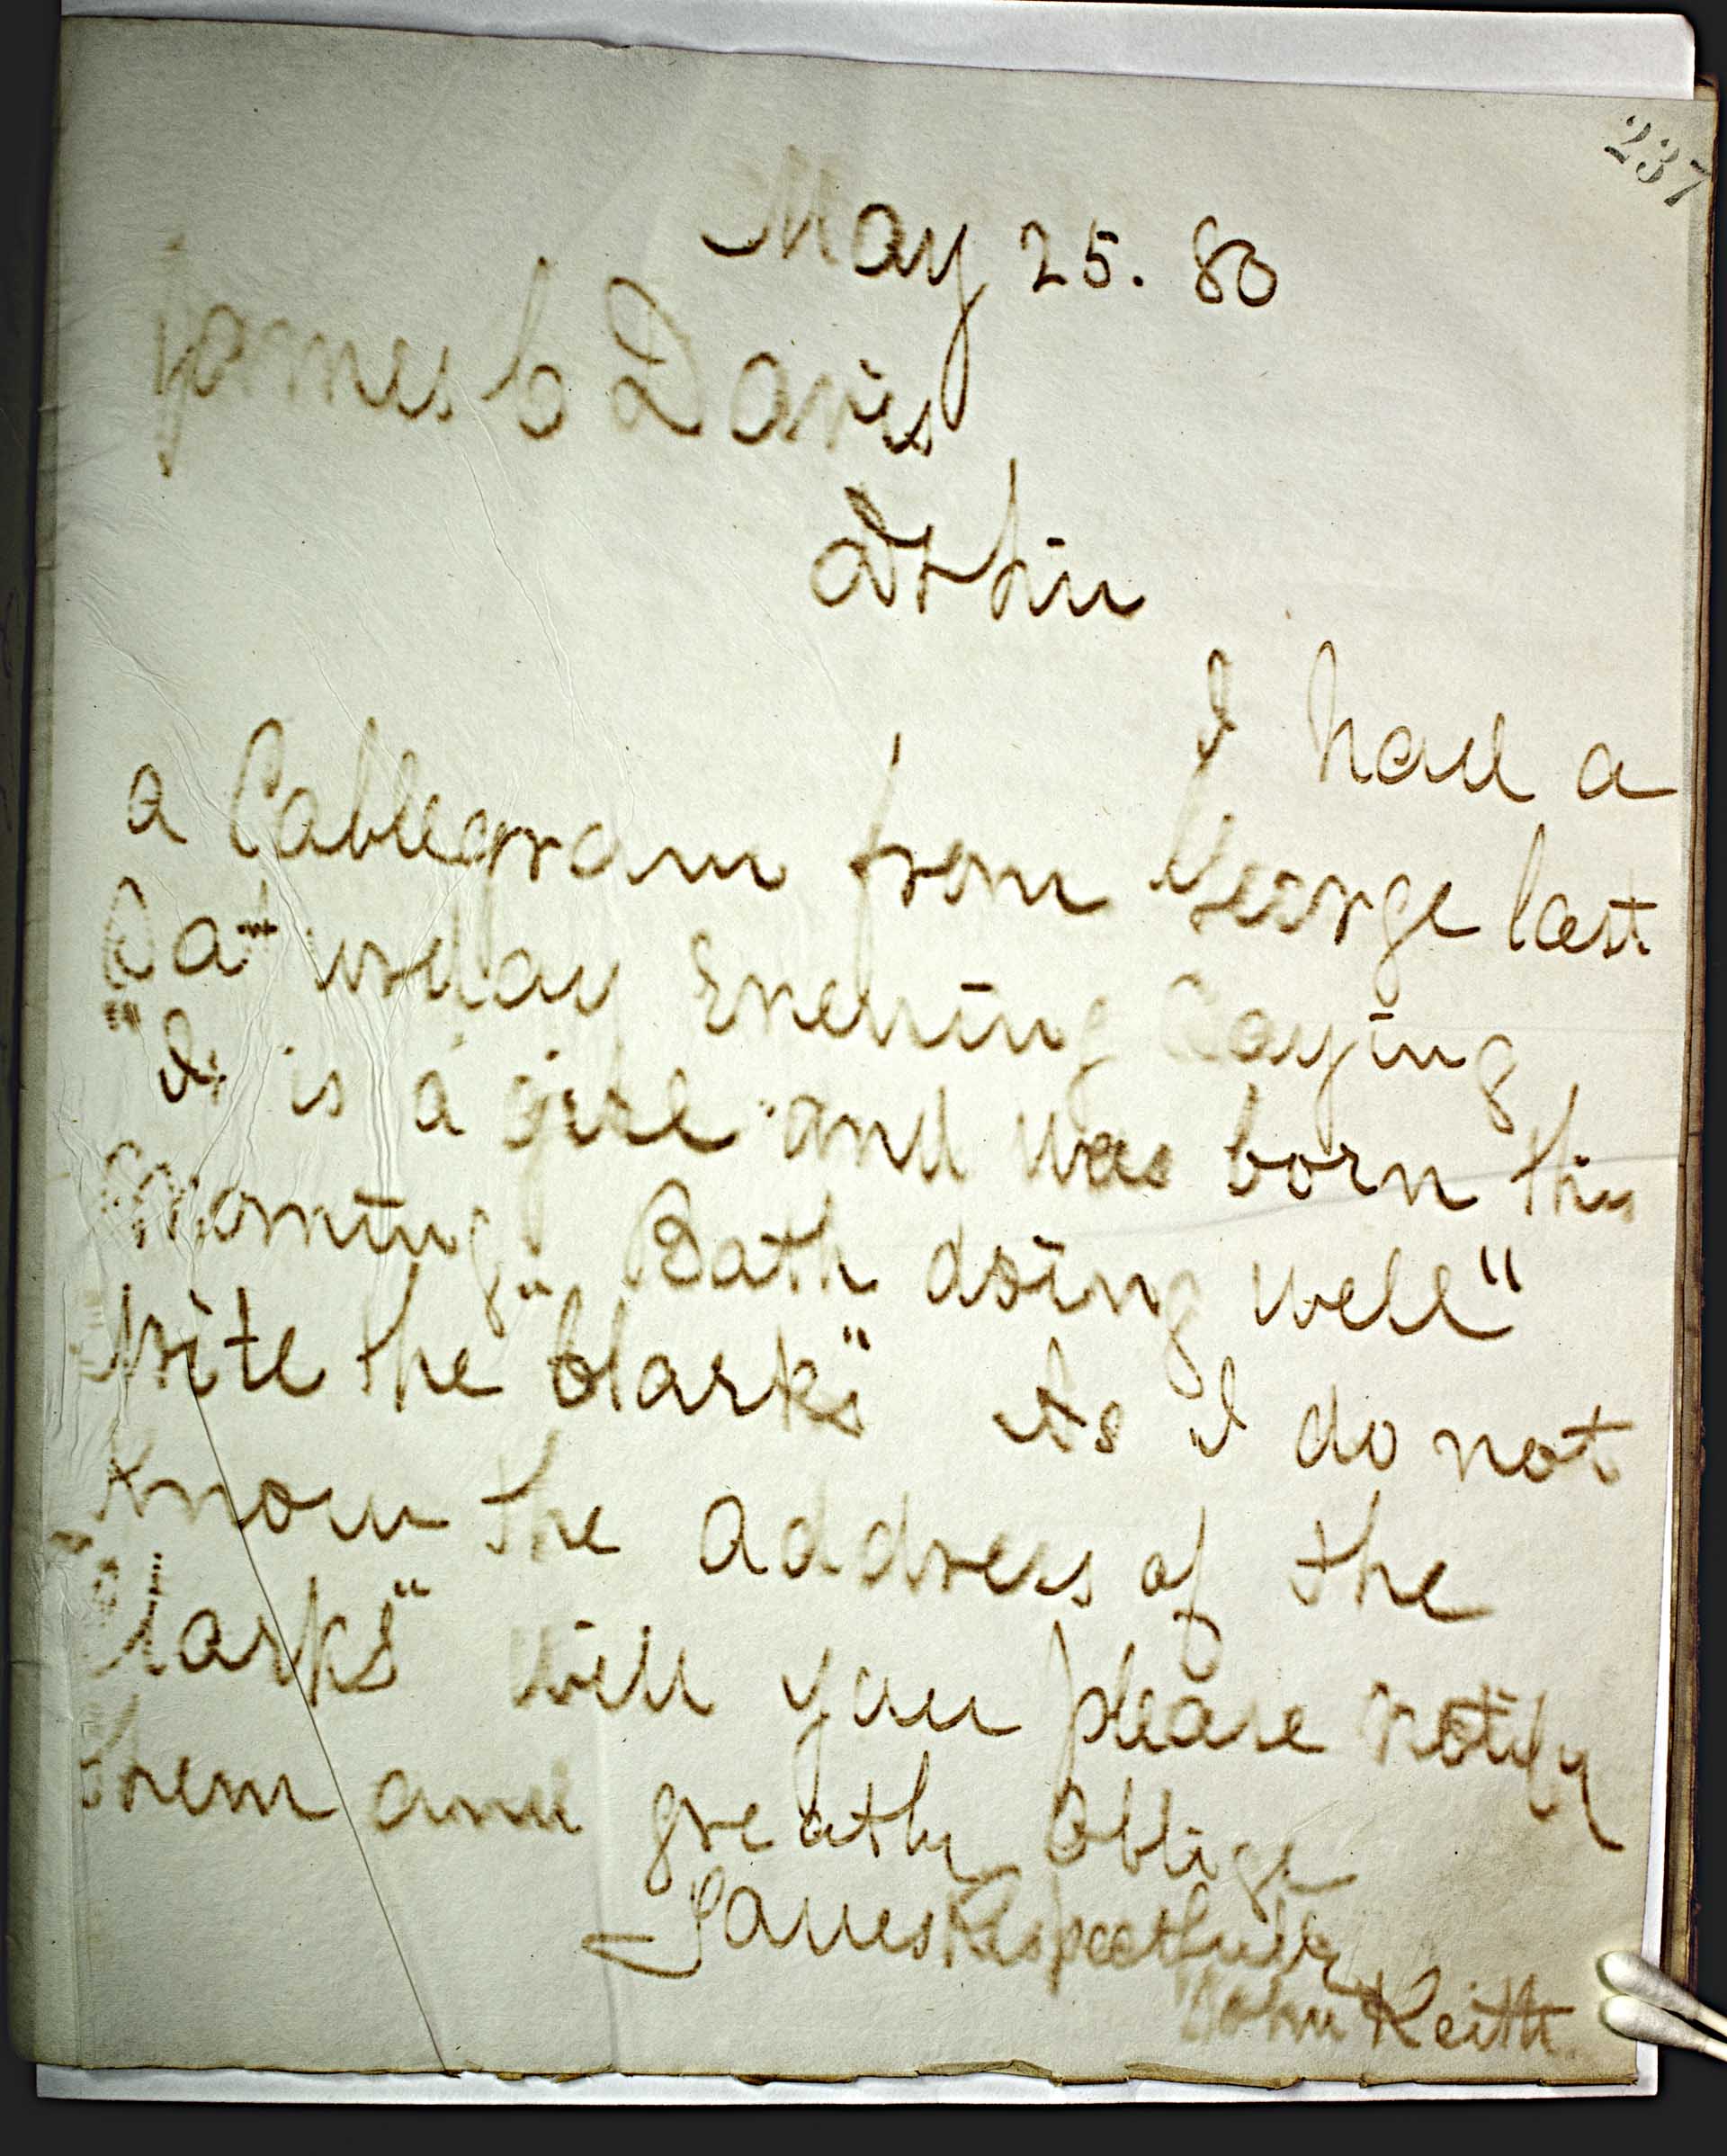 237
May 25. 80
James C Davis
D Sir
I have a
a Cablegram from George last
Saturday Evening Saying
"It is a girl and was born this
morning" Both doing well"
Write the "Clarks" As I do not
Know the address of the
"Clarks" will you please notify
them and greatly oblige
Yours Respectfully
John Keith